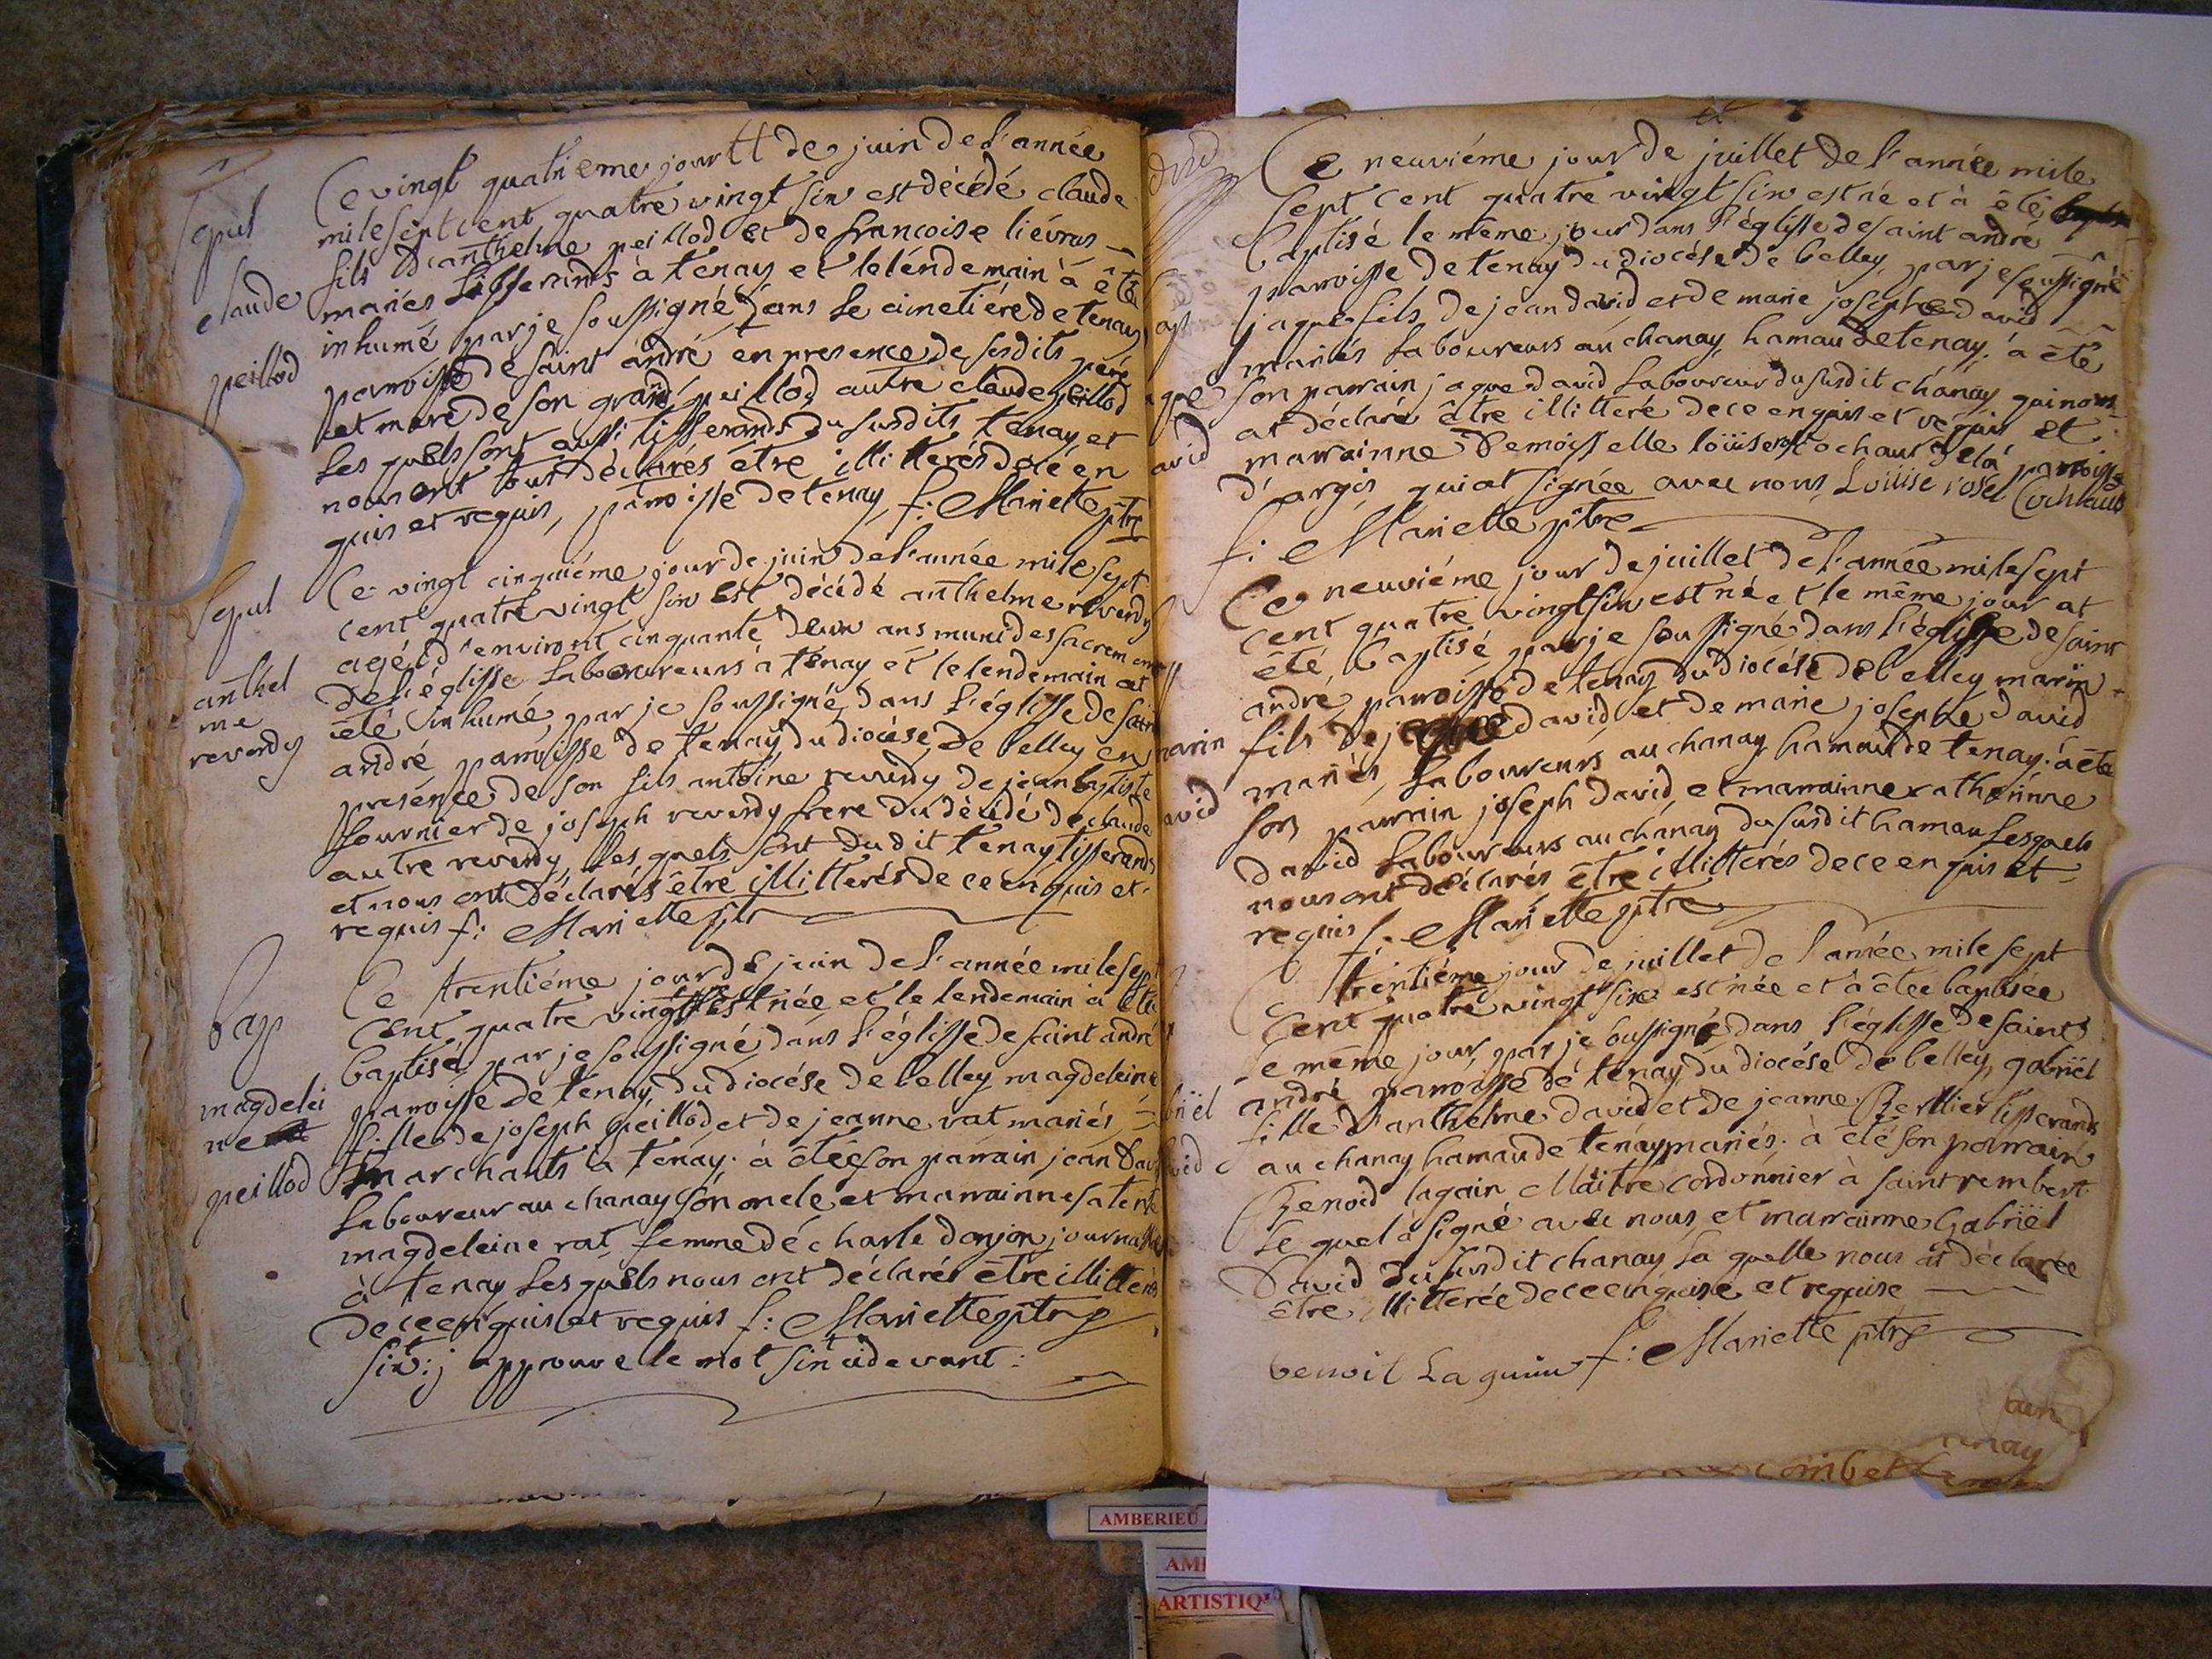 Sepul
claude
peillod
Ce vingt quatrieme jour de juin de l'année
mile sept cent quatre vingt six est décédé claude
fils d'anthelme peillod et de francoise liévras
mariés tisserands à tenay et le léndemain à été
inhumé par je soussigné dans le cimetiére de tenay
paroisse de saint andré en presence de sesdits pére
et mere de son grand peillod autre claude peillod
Les quels sont aussi tisserands du susdits tenay et
nous ont tout déclarés être illitterés de cé en
quis et requis, paroisse de tenay, f: Mariette ptre
Sepul
anthel
me
reverdy
Ce vingt cinquiéme jour de juin de l'année mile sept
cent quatre vingt six est décédé anthelme reverdy
agé d'environt cinquante deux ans muni des sacrem
de l'églisse Laboureurs à tenay et le lendemain at
été inhumé par je soussigné dans l'églisse de saint
andré paroisse de tenay du diocése de belley en
presénce de son fils antoine reverdy de jean baptiste
fournier de joseph reverdy frere du décédé de claude
autre reverdy, les quels sont dudit tenay tisserands
et nous ont déclarés être illitterés de ce en quis et
requis f: Mariette ptr
Bap
magdelei
ne
peillod
Ce trentiéme jour de juin de l'année mile sept
cent quatre vingt est née et le lendemain à été
baptisé par je soussigné dans l'églisse de saint andré
paroisse de tenay du diocése de belley magdeleine
fille de joseph peillod et de jeanne rat mariés
marchants à tenay. à été son parrain jean Davi
Laboureur au chanay son oncle et marrainne sa tente
magdeleine rat femme dé charle donjon journa
à tenay Les quels nous ont déclarés être illitterés
de ce en quis et requis f: Mariette ptre
sixt: j approuve le mot sixt cide vant:
David
Ce neuviéme jour de juillet de l'année mile
sept cent quatre vingt six est né et à été
baptisé le méme jour dans l'églisse de saint andré
paroisse de tenay du diocése de belley par je soussigné
jaque fils de jean david et de marie josephe david
mariés Laboureurs au chanay hamau de tenay. à été
son parrain jaque david Laboureur du susdit chánay qui nous
at déclaré être illitteré de ce enquis et requis et
marrainne Demoisselle loüise rose cochaud de la paroisse
d'argis qui at signée avec nous, Loüise rose Cochaud
f: Mariette ptre
que
avid
Ce neuviéme jour de juillet de l'année mile sept
cent quatre vingt six est né et le même jour at
été baptisé par je soussigné dans l'églisse de saint
andré paroisse de tenay du diocése de belley marin
fils de jaque david et de marie josephe david
mariés, Laboureurs au chanay hamau de tenay. à été
son parrain joseph david et marrainne catherinne
david Laboureurs au chánay du susdit hamau Lesquels
nous ont déclarés être illitterés de ce en quis et
requis f: Mariette ptre
marin
avid
Ce trentiéme jour de juillet de l'année mile sept
cent quatre vingt six est née et à étée baptisée
Le méme jour par je soussigné dans l'églisse de saint
andré paroisse de tenay du diocése de belley, gabriël
fille d'anthelme david et de jeanne Berllier tisserands
au chanay hamau de tenay mariés. à été son parrain
Benoid lagain Maître cordonnier à saint rembert.
Le quel à signé avec nous et marrainne Gabriël
David du susdit chanay La quelle nous at déclarée
être illitterée de ce enquise et requise
briël
vid
benoit Laguin f: Mariette ptre
tenay
combet
AMBERIEU
AM
ARTISTIQ